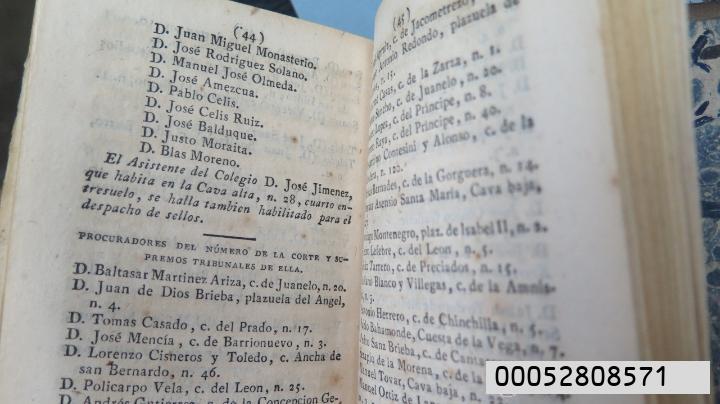 (44)
D. Juan Miguel Monasterio.
D. José Rodriguez Solano.
D. Manuel José Olmeda.
D. José Amezcua.
D. Pablo Celis.
D. José Celis Ruiz.
D. José Balduque.
D. Justo Moraita.
D. Blas Moreno.
El Asistente del Colegio D. José Jimenez,
que habita en la Cava alta, n. 28, cuarto en-
tresuelo, se halla tambien habilitado para el
despacho de sellos.
PROCURADORES DEL NÚMERO DE LA CORTE Y SU-
PREMOS TRIBUNALES DE ELLA.
D. Baltasar Martinez Ariza, c. de Juanelo, n. 20.
D. Juan de Dios Brieba, plazuela del Angel,
n. 4.
D. Tomas Casado, c. del Prado, n. 17.
D. José Mencía, c. de Barrionuevo, n. 3.
D. Lorenzo Cisneros y Toledo, c. Ancha de
san Bernardo, n. 46.
D. Policarpo Vela, c. del Leon, n. 25.
D. Andrés Gutierrez, c. de la Concepcion Ge-
(45)
c. de Jacometrezo,
Antonio Redondo, plazuela de
n. 15.
Casas, c. de la Zarza, n. 1.
c. de Juanelo, n. 20.
c. del Príncipe, n. 8.
c. del Príncipe, n. 40.
Contesini y Alonso, c. de la
n. 120.
c. de la Gorguera, n. 14.
Asensio Santa María, Cava baja,
Montenegro, plaz. de Isabel II, n. 2.
Lefebre, c. del Leon, n. 5.
Tarrero, c. de Preciados, n. 15.
Blanco y Villegas, c. de la Amnis-
n. 3.
Antonio Herrero, c. de Chinchilla, n. 5.
Bahamonde, Cuesta de la Vega, n. 7.
Sanz Brieba, c. de
de la Morena, c. de la
Manuel Tovar, Cava baja, n. 22.
Manuel Ortiz de
00052808571